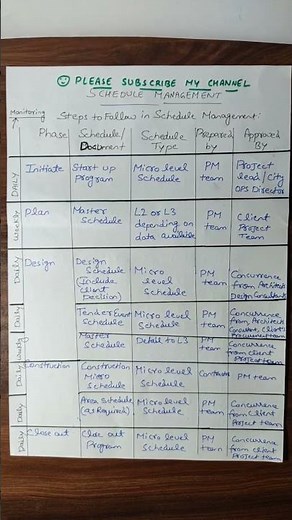 PLEASE SUBSCRIBE MY CHANNEL
SCHEDULE MANAGEMENT
Monitoring
Steps to Follow in Schedule Management:
Phase Schedule/ Document Schedule Type Prepared by Approved By
DAILY Initiate Start up Program Micro level Schedule PM team Project lead/City OPS Director
Weekly Plan Master Schedule L2 or L3 depending on data available PM team Client Project Team
Daily Design Design Schedule (Include Client Decision) Micro level Schedule PM team Concurrence from Architects Design Consultant
Daily Tender Event Schedule Micro level Schedule PM team Concurrence from Architects Client's team
Weekly Master Schedule Detail to L3 PM team Concurrence from client Project team
Daily Construction Construction Micro Schedule Micro level Schedule Contractor PM team
Daily Area Schedule (as Required) Micro level Schedule PM team Concurrence from Client Project team
Daily Close out Close out Program Micro level Schedule PM team Concurrence from client Project team